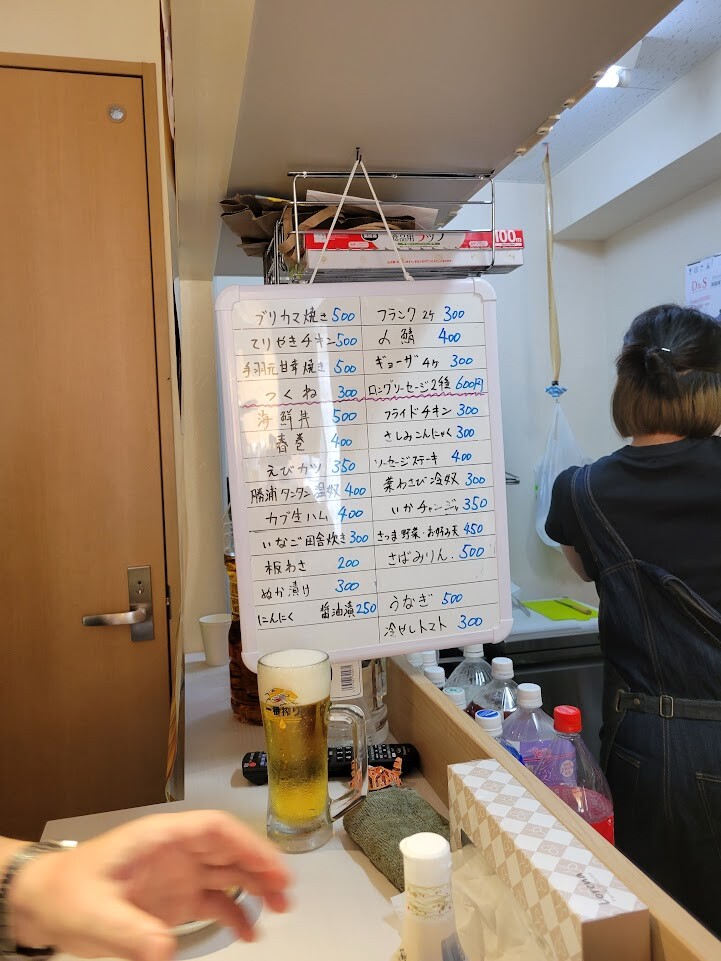 食品用ラップ 100m
D&S
ブリカマ焼き 500
てりやきチキン 500
手羽元甘辛焼き 500
つくね 300
海鮮丼 500
春巻 400
えびカツ 350
勝浦タンタン温奴 400
カブ生ハム 400
いなご田舎炊き 300
板わさ 200
ぬか漬け 300
にんにく 醤油漬 250
フランク 2ケ 300
〆鯖 400
ギョーザ 4ケ 300
ロングソーセージ2種 600円
フライドチキン 300
さしみこんにゃく 300
ソーセージステーキ 400
葉わさび冷奴 300
いかチャンジャ 350
さつま野菜・お好み天 450
さばみりん. 500
うなぎ 500
冷やしトマト 300
一番搾り
Lorena